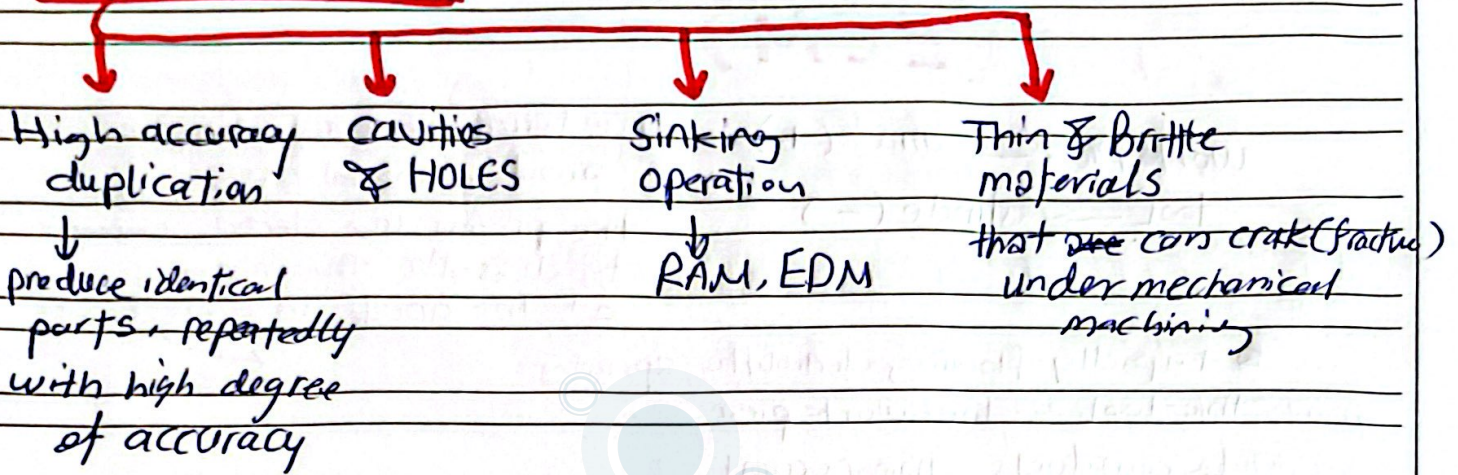 High accuracy
duplication
↓
produce identical
parts, repeatedly
with high degree
of accuracy
Cavities
& HOLES
Sinking
operation
↓
RAM, EDM
Thin & Brittle
materials
that can crak (fractue)
under mechanical
machining